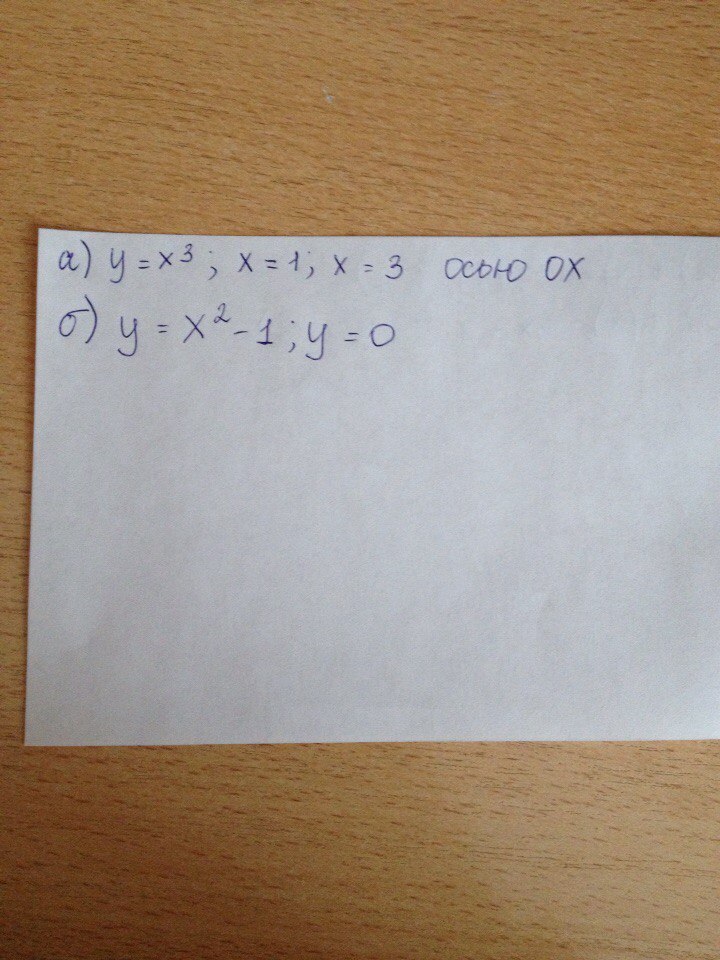 а) y = x³; x = 1; x = 3 осью OX
б) y = x² - 1; y = 0